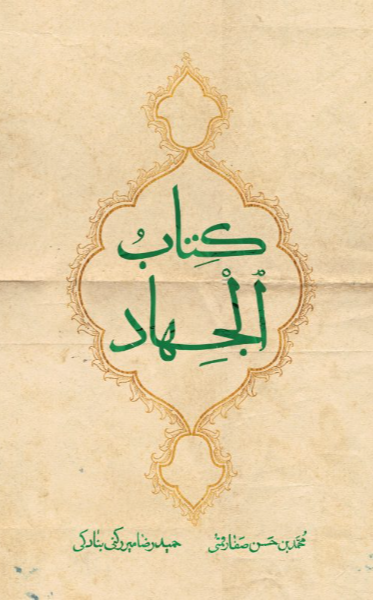 كِتابُ
الْجِهاد
محمّد بن حسن صفّار قمی حمیدرضا میررکنی بنادکی